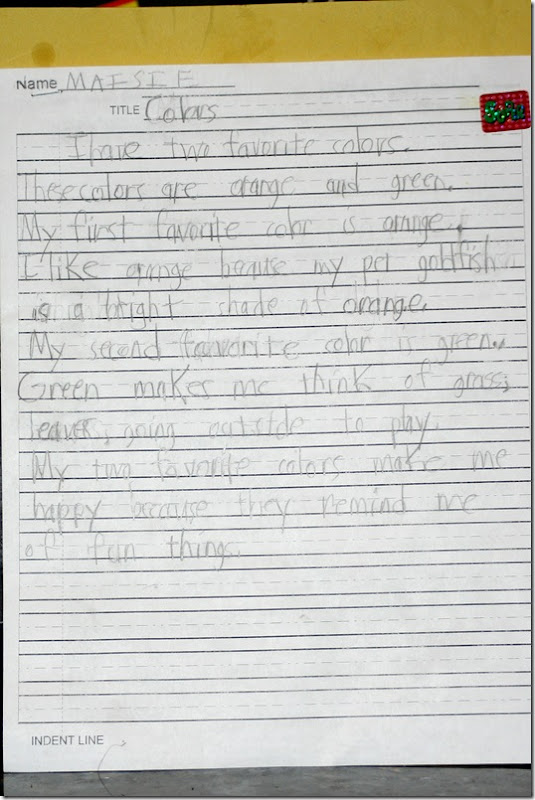 Name MAISIE
TITLE Colors
I have two favorite colors.
These colors are orange and green.
My first favorite color is orange.
I like orange because my pet goldfish
is a bright shade of orange.
My second favorite color is green.
Green makes me think of grass,
leaves, going outside to play.
My two favorite colors make me
happy because they remind me
of fun things.
INDENT LINE